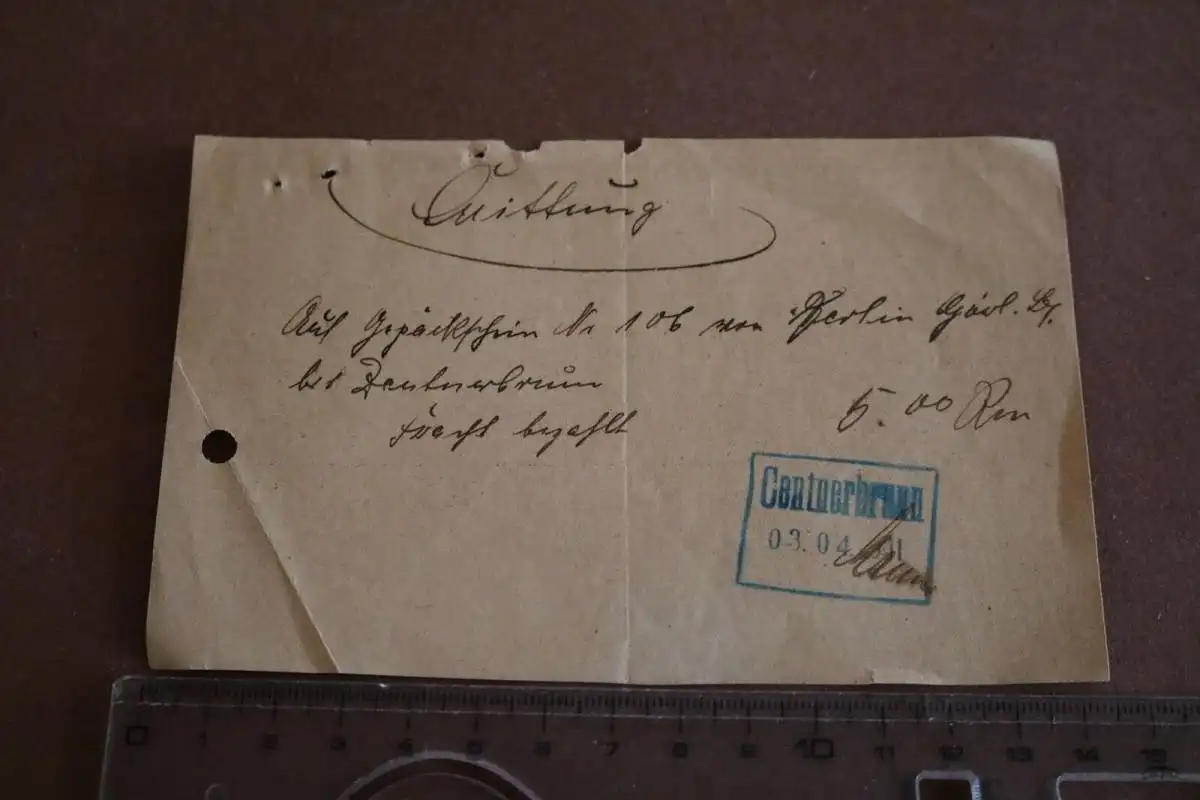 Quittung
Auf Gepäckschein Nr 106 von Berlin Görl. Bf.
bis Zentnerbrunn
Fracht bezahlt
5.00 Rm
Centnerbrunn
03.04
0 1 2 3 4 5 6 7 8 9 10 11 12 13 14 15